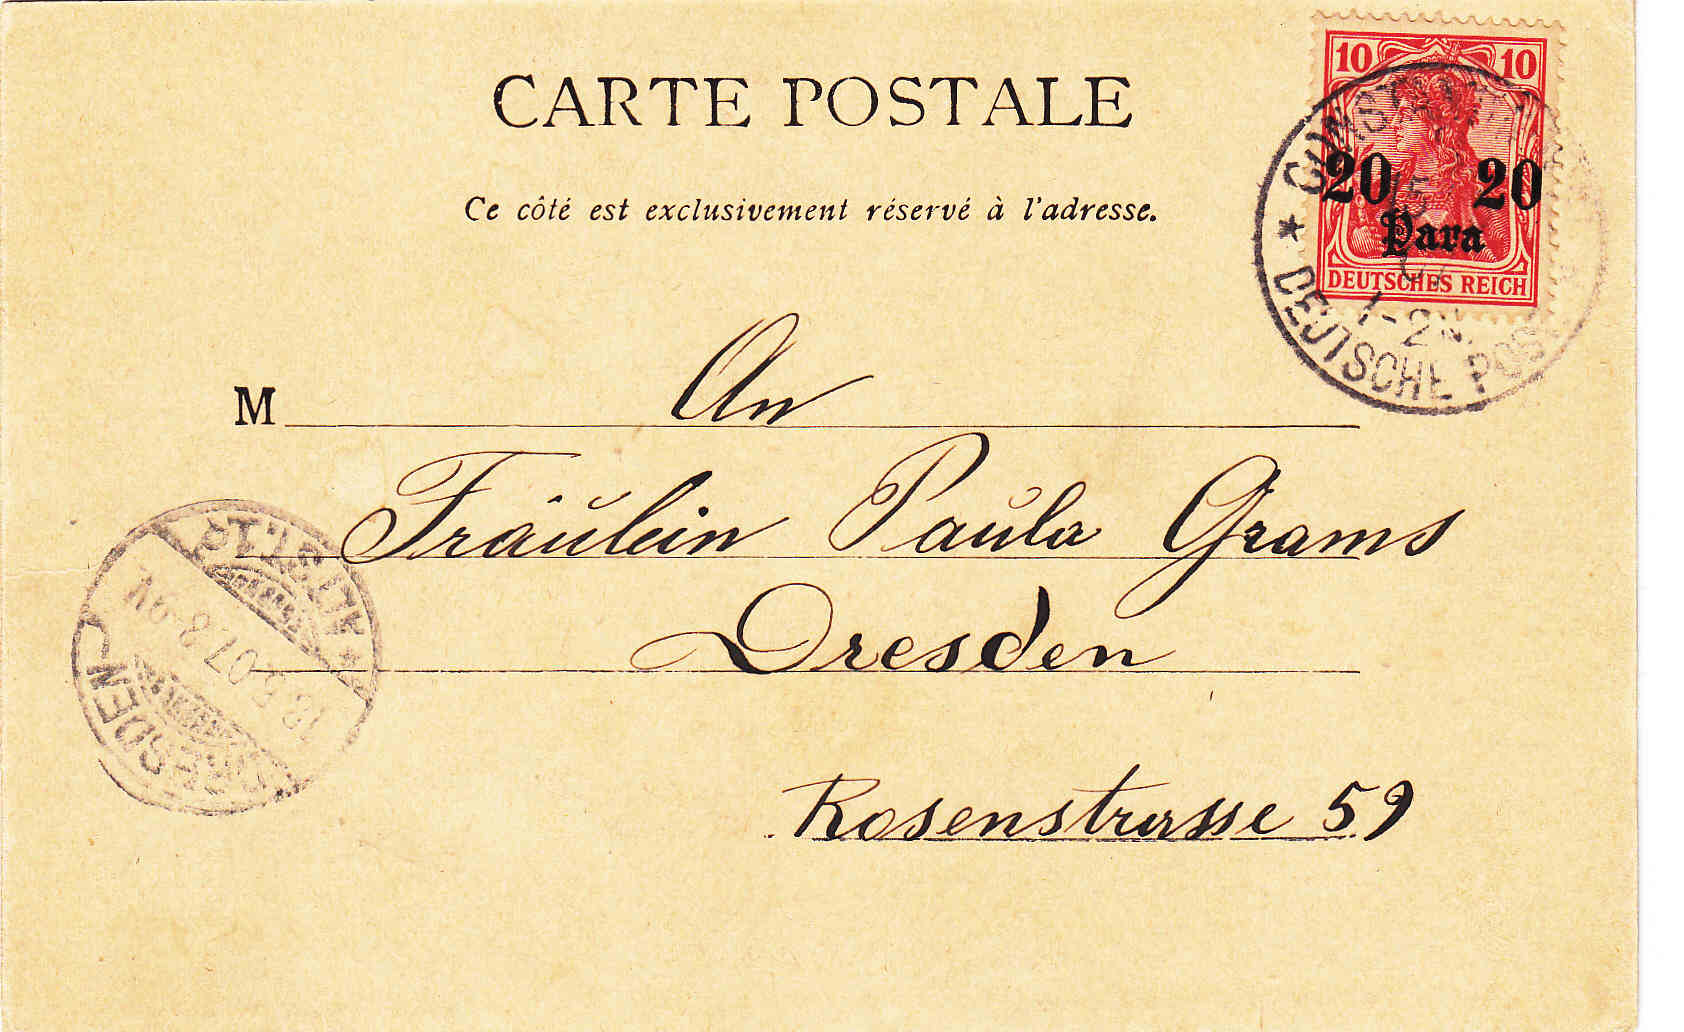 CARTE POSTALE
Ce côté est exclusivement réservé à l'adresse.
10 10
20 20
Para
DEUTSCHES REICH
DEUTSCHE POST
1-2N.
M
An
Fräulein Paula Grams
Dresden
Rosenstrasse 59
DRESDEN
ALTST. 1
18.5.07. 8-9V.